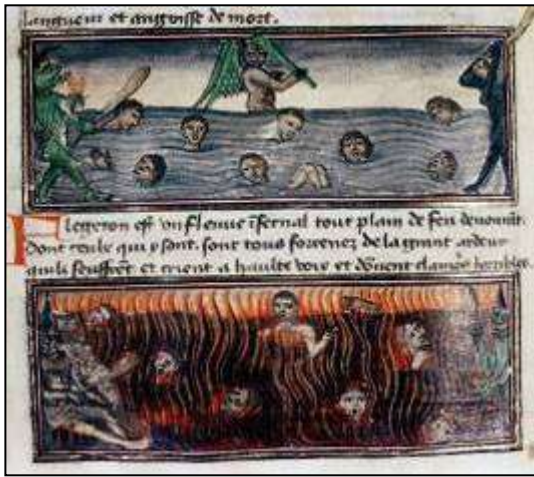 langueur et angoisse de mort.
Flegeron est un fleuue infernal tout plain de feu deuourāt.
Dont ceulx qui y sont, sont tous forcenez de la grant ardeur
quilz seuffrēt et crient a haulte voix et dōnent clameurs horribles.